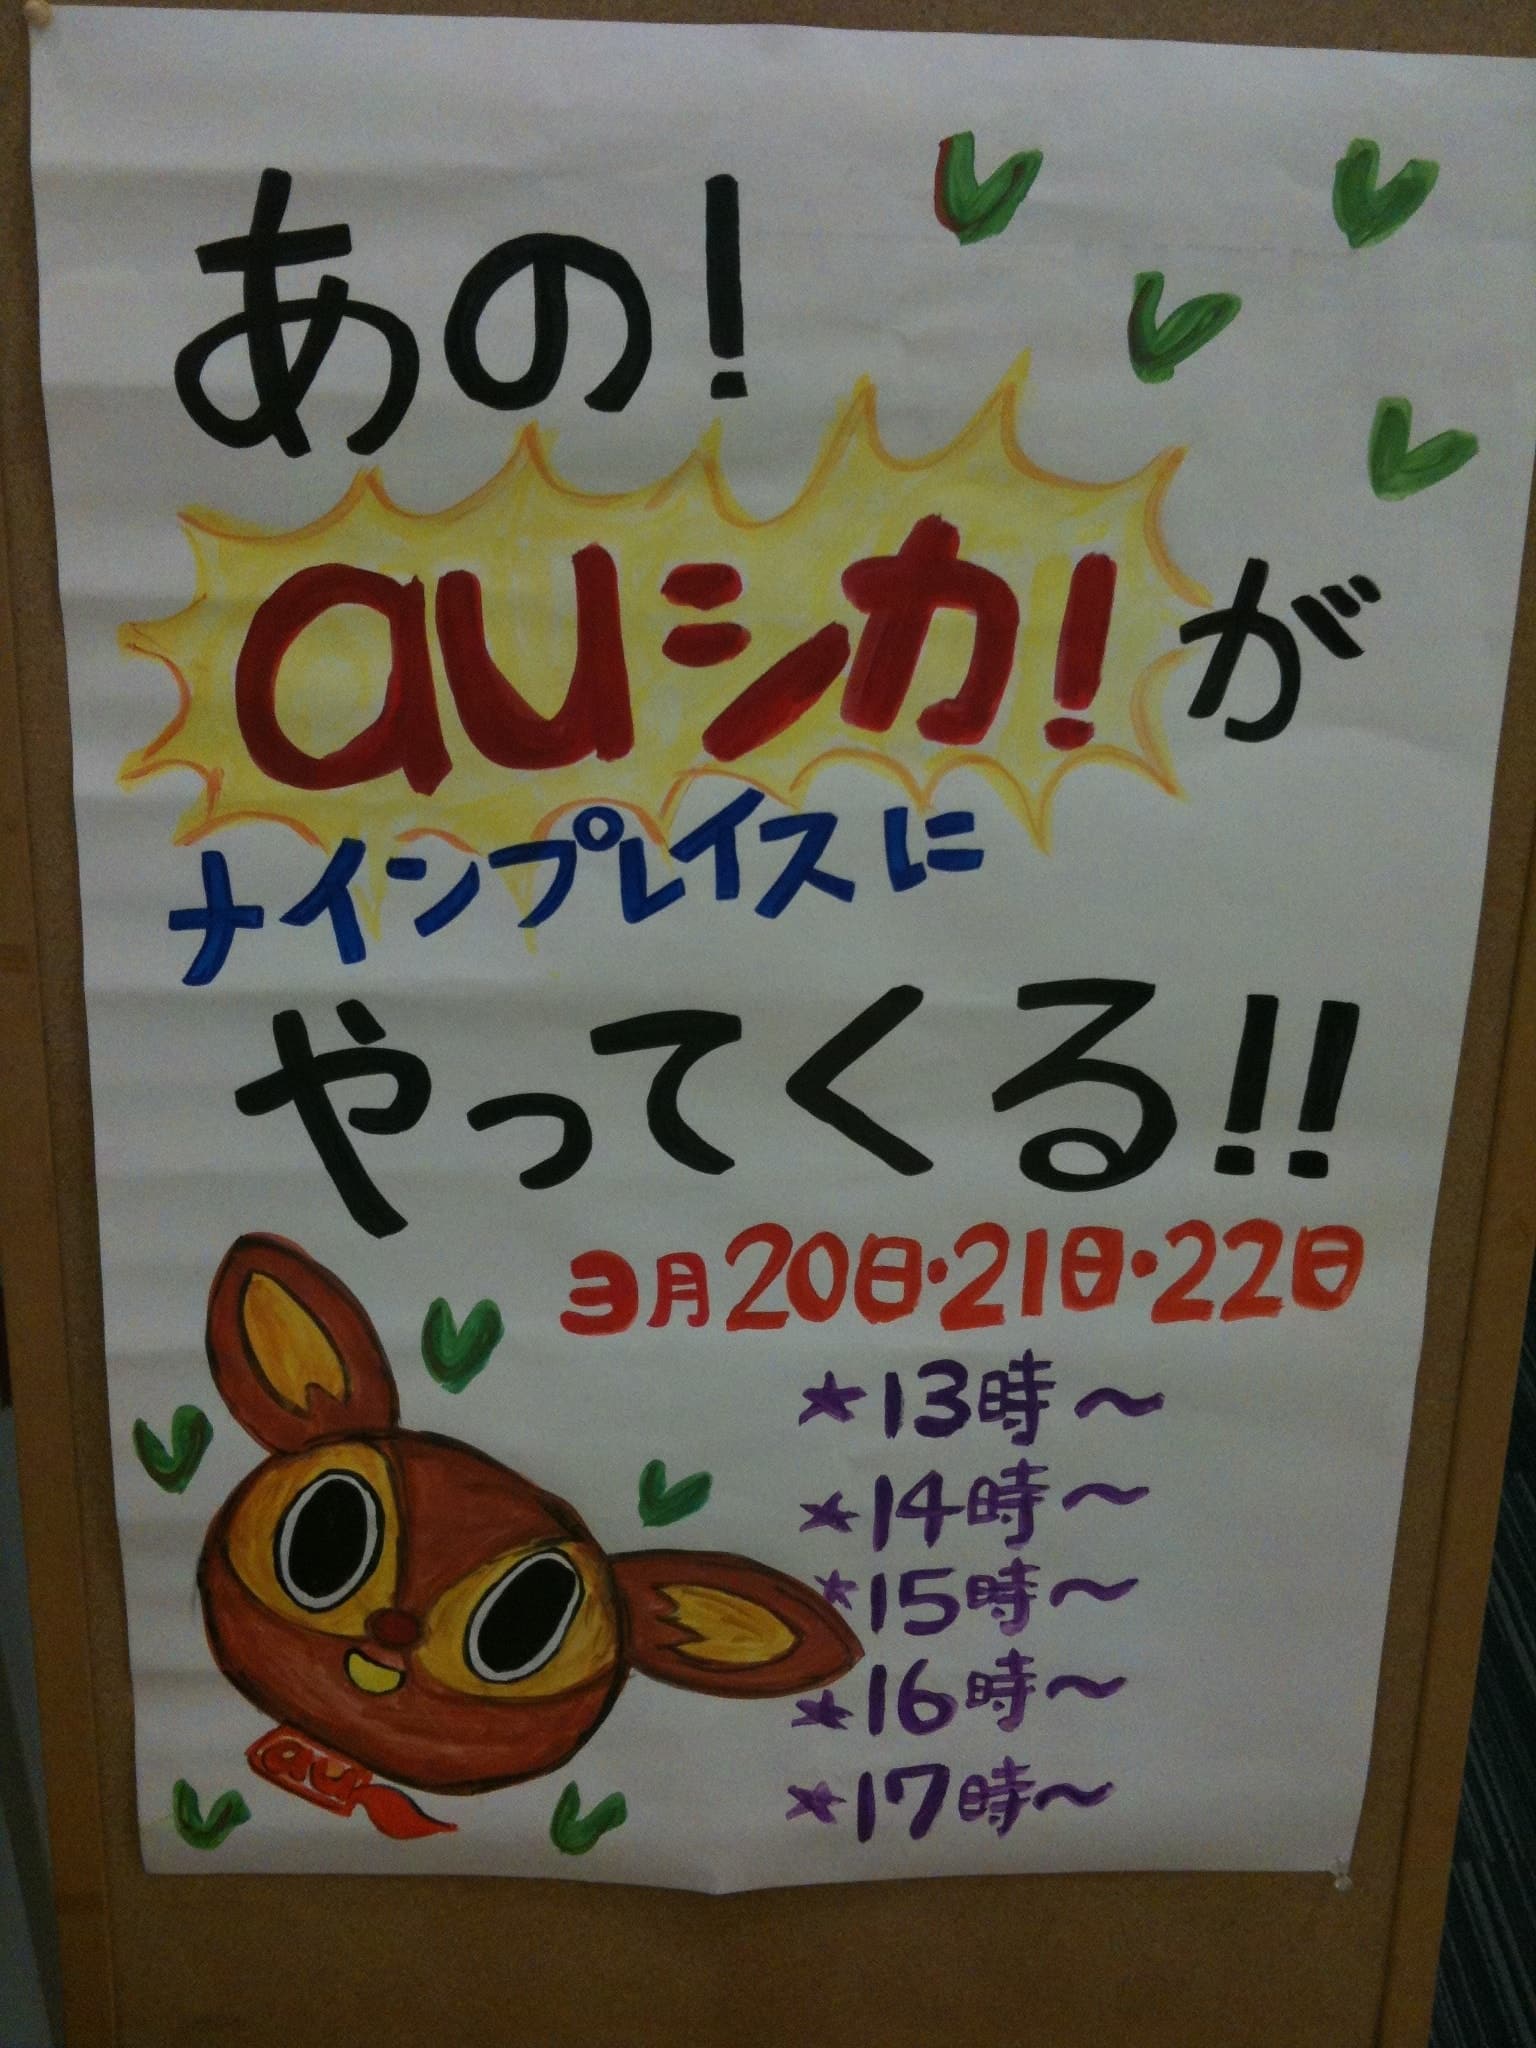 あの!
auシカ!が
メインプレイスに
やってくる!!
3月20日・21日・22日
★13時〜
★14時〜
★15時〜
★16時〜
★17時〜
au